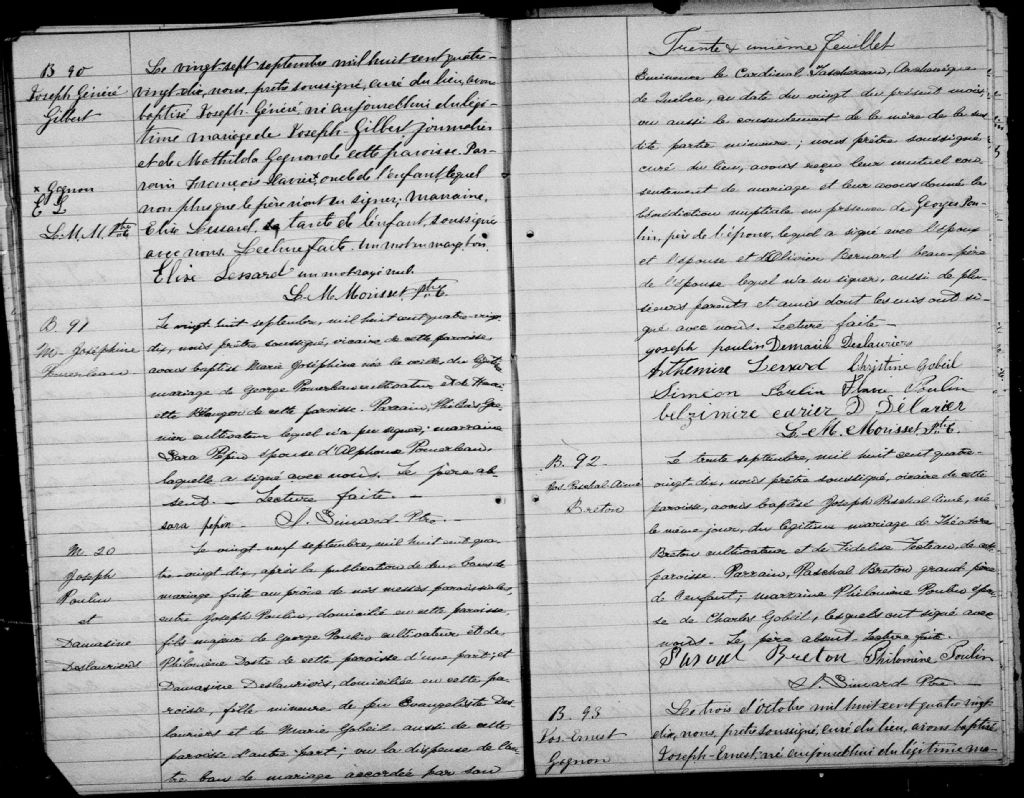 B 90
Joseph Généré
Gilbert
x Gagnon
E L
L. M. M. Ptre
Le vingt-sept septembre mil huit cent quatre-
vingt-dix, nous, prêtre soussigné, curé du lieu, avons
baptisé Joseph-Généré, né aujourd'hui du légi-
time mariage de Joseph Gilbert journalier
et de Mathilda Gagnon de cette paroisse. Par-
rain François Xavier x, oncle de l'enfant lequel
non plus que le père n'ont su signer; marraine,
Elise Lessard, tante de l'enfant, soussignée
avec nous. Lecture faite. Un mot en marge bon.
Elise Lessard un mot rayé nul
L. M. Morisset Ptre
B. 91
M. Joséphine
Pomerleau
Le vingt huit septembre, mil huit cent quatre-vingt
dix, nous prêtre soussigné, vicaire de cette paroisse,
avons baptisé Marie Joséphine née la veille du légitime
mariage de George Pomerleau cultivateur et de
de cette paroisse. Parrain, Philias
cultivateur lequel n'a pu signer; marraine
Sara Pepin épouse d'Alphonse Pomerleau,
laquelle a signé avec nous. Le père ab-
sent. — Lecture faite. —
sara pepin — J. Simard Ptre. —
M. 20
Joseph
Poulin
et
Damasine
Deslauriers
Le vingt neuf septembre, mil huit cent qua-
tre-vingt dix, après la publication de deux bans de
mariage faite au prône de nos messes paroissiales,
entre Joseph Poulin, domicilié en cette paroisse,
fils majeur de George Poulin cultivateur et de
Philomène de cette paroisse d'une part; et
Damasine Deslauriers, domiciliée en cette pa-
roisse, fille mineure de feu Evangeliste Des-
lauriers et de Marie Gobeil aussi de cette
paroisse d'autre part; vu la dispense de l'au-
tre ban de mariage accordée par son
Trente & unième feuillet
Eminence le Cardinal Taschereau, Archevêque
de Québec, en date du vingt du présent mois,
vu aussi le consentement de la mère de la sus-
dite partie mineure; nous prêtre soussigné
curé du lieu, avons reçu leur mutuel con-
sentement de mariage et leur avons donné la
bénédiction nuptiale en présence de Georges Pou-
lin, père de l'époux, lequel a signé avec l'époux
et l'épouse et d'Olivier Bernard beau-père
de l'épouse lequel n'a su signer, aussi de plu-
sieurs parents et amis dont les uns ont si-
gné avec nous. Lecture faite —
joseph poulin Damasile Deslauriers
Arthemise Lessard Christine Gobeil
Siméon Poulin Poulin
belzimire carier D Délarier
L. M. Morisset Ptre
B. 92
Jos. Paschal Aimé
Breton
Le trente septembre, mil huit cent quatre-
vingt dix, nous prêtre soussigné, vicaire de cette
paroisse, avons baptisé Joseph Paschal Aimé, né
le même jour, du légitime mariage de Théodore
Breton cultivateur et de Fidelise de cette
paroisse. Parrain, Paschal Breton grand père
de l'enfant; marraine Philomène Poulin épou-
se de Charles Gobeil, lesquels ont signé avec
nous. Le père absent. Lecture faite.
Pascal Breton Philomène Poulin
J. Simard Ptre. —
B. 93
Jos. Ernest
Gagnon
Le trois d'octobre mil huit cent quatre vingt
dix, nous, prêtre soussigné, curé du lieu, avons baptisé
Joseph-Ernest, né aujourd'hui du légitime ma-